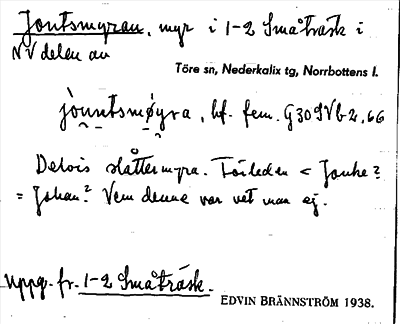 Jontsmyran, myr i 1-2 Småträsk i
NV delen av
Töre sn, Nederkalix tg, Norrbottens l.
jònntsmǿyra, bf. fem. G30SVb2.66
Delvis slåttermyra. Förleden < Jonke?
= Johan? Vem denne var vet man ej.
Uppg. fr. 1-2 Småträsk.
EDVIN BRÄNNSTRÖM 1938.